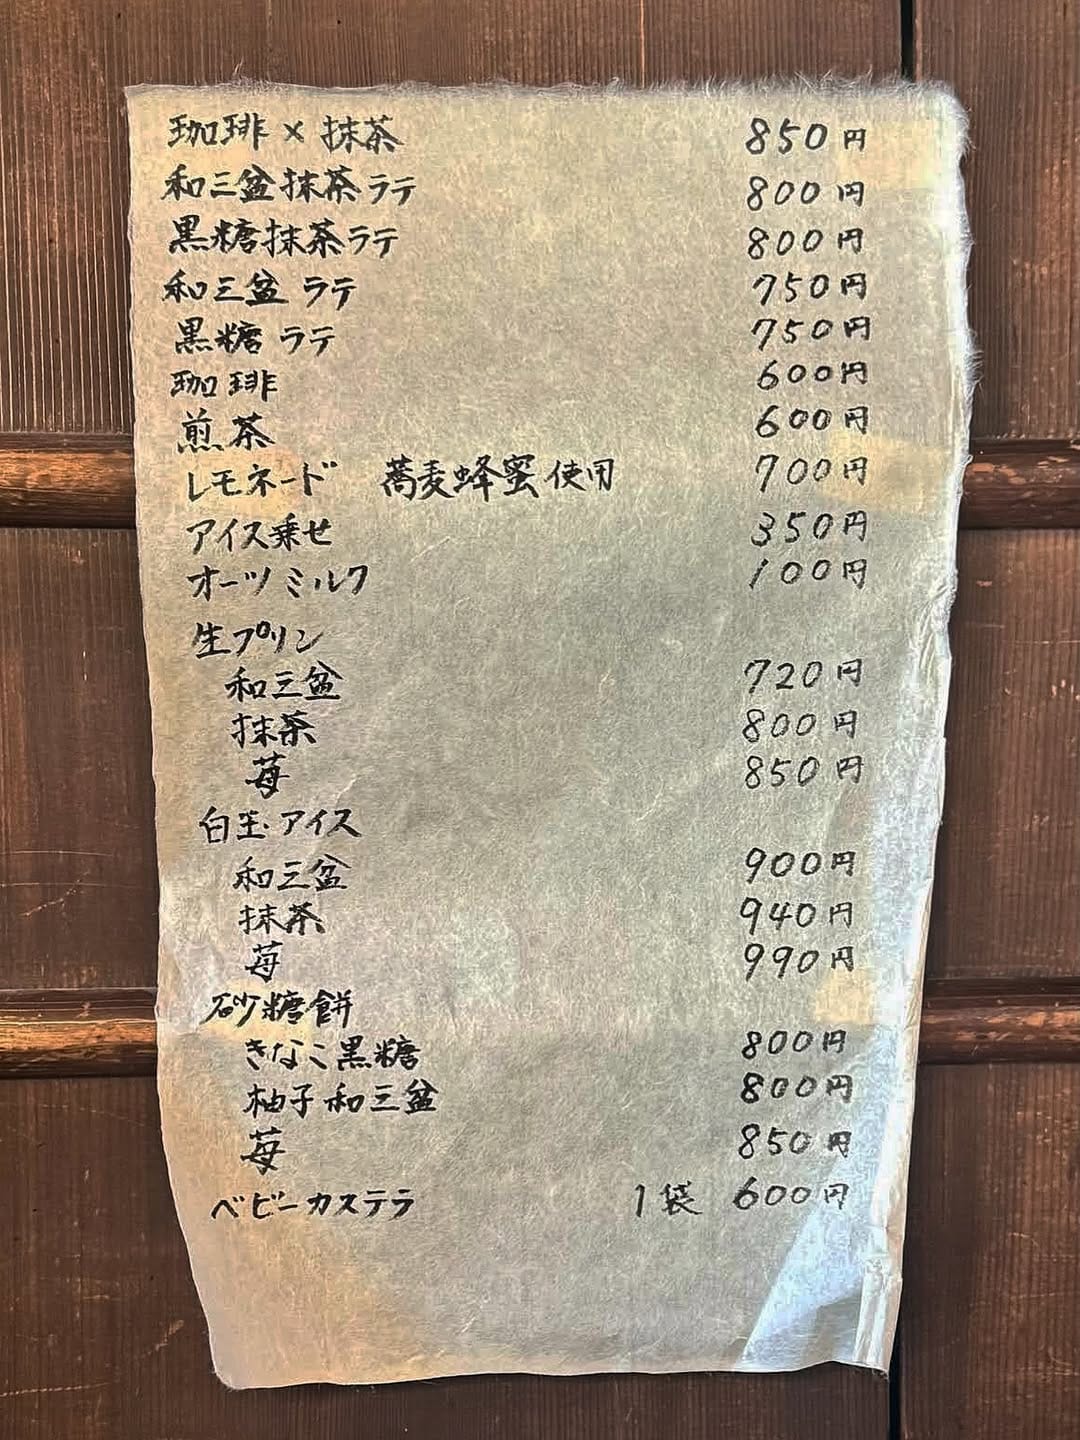 珈琲×抹茶 850円
和三盆抹茶ラテ 800円
黒糖抹茶ラテ 800円
和三盆ラテ 750円
黒糖ラテ 750円
珈琲 600円
煎茶 600円
レモネード 蕎麦蜂蜜使用 700円
アイス乗せ 350円
オーツミルク 100円
生プリン
和三盆 720円
抹茶 800円
苺 850円
白玉アイス
和三盆 900円
抹茶 940円
苺 990円
砂糖餅
きなこ黒糖 800円
柚子和三盆 800円
苺 850円
ベビーカステラ 1袋 600円